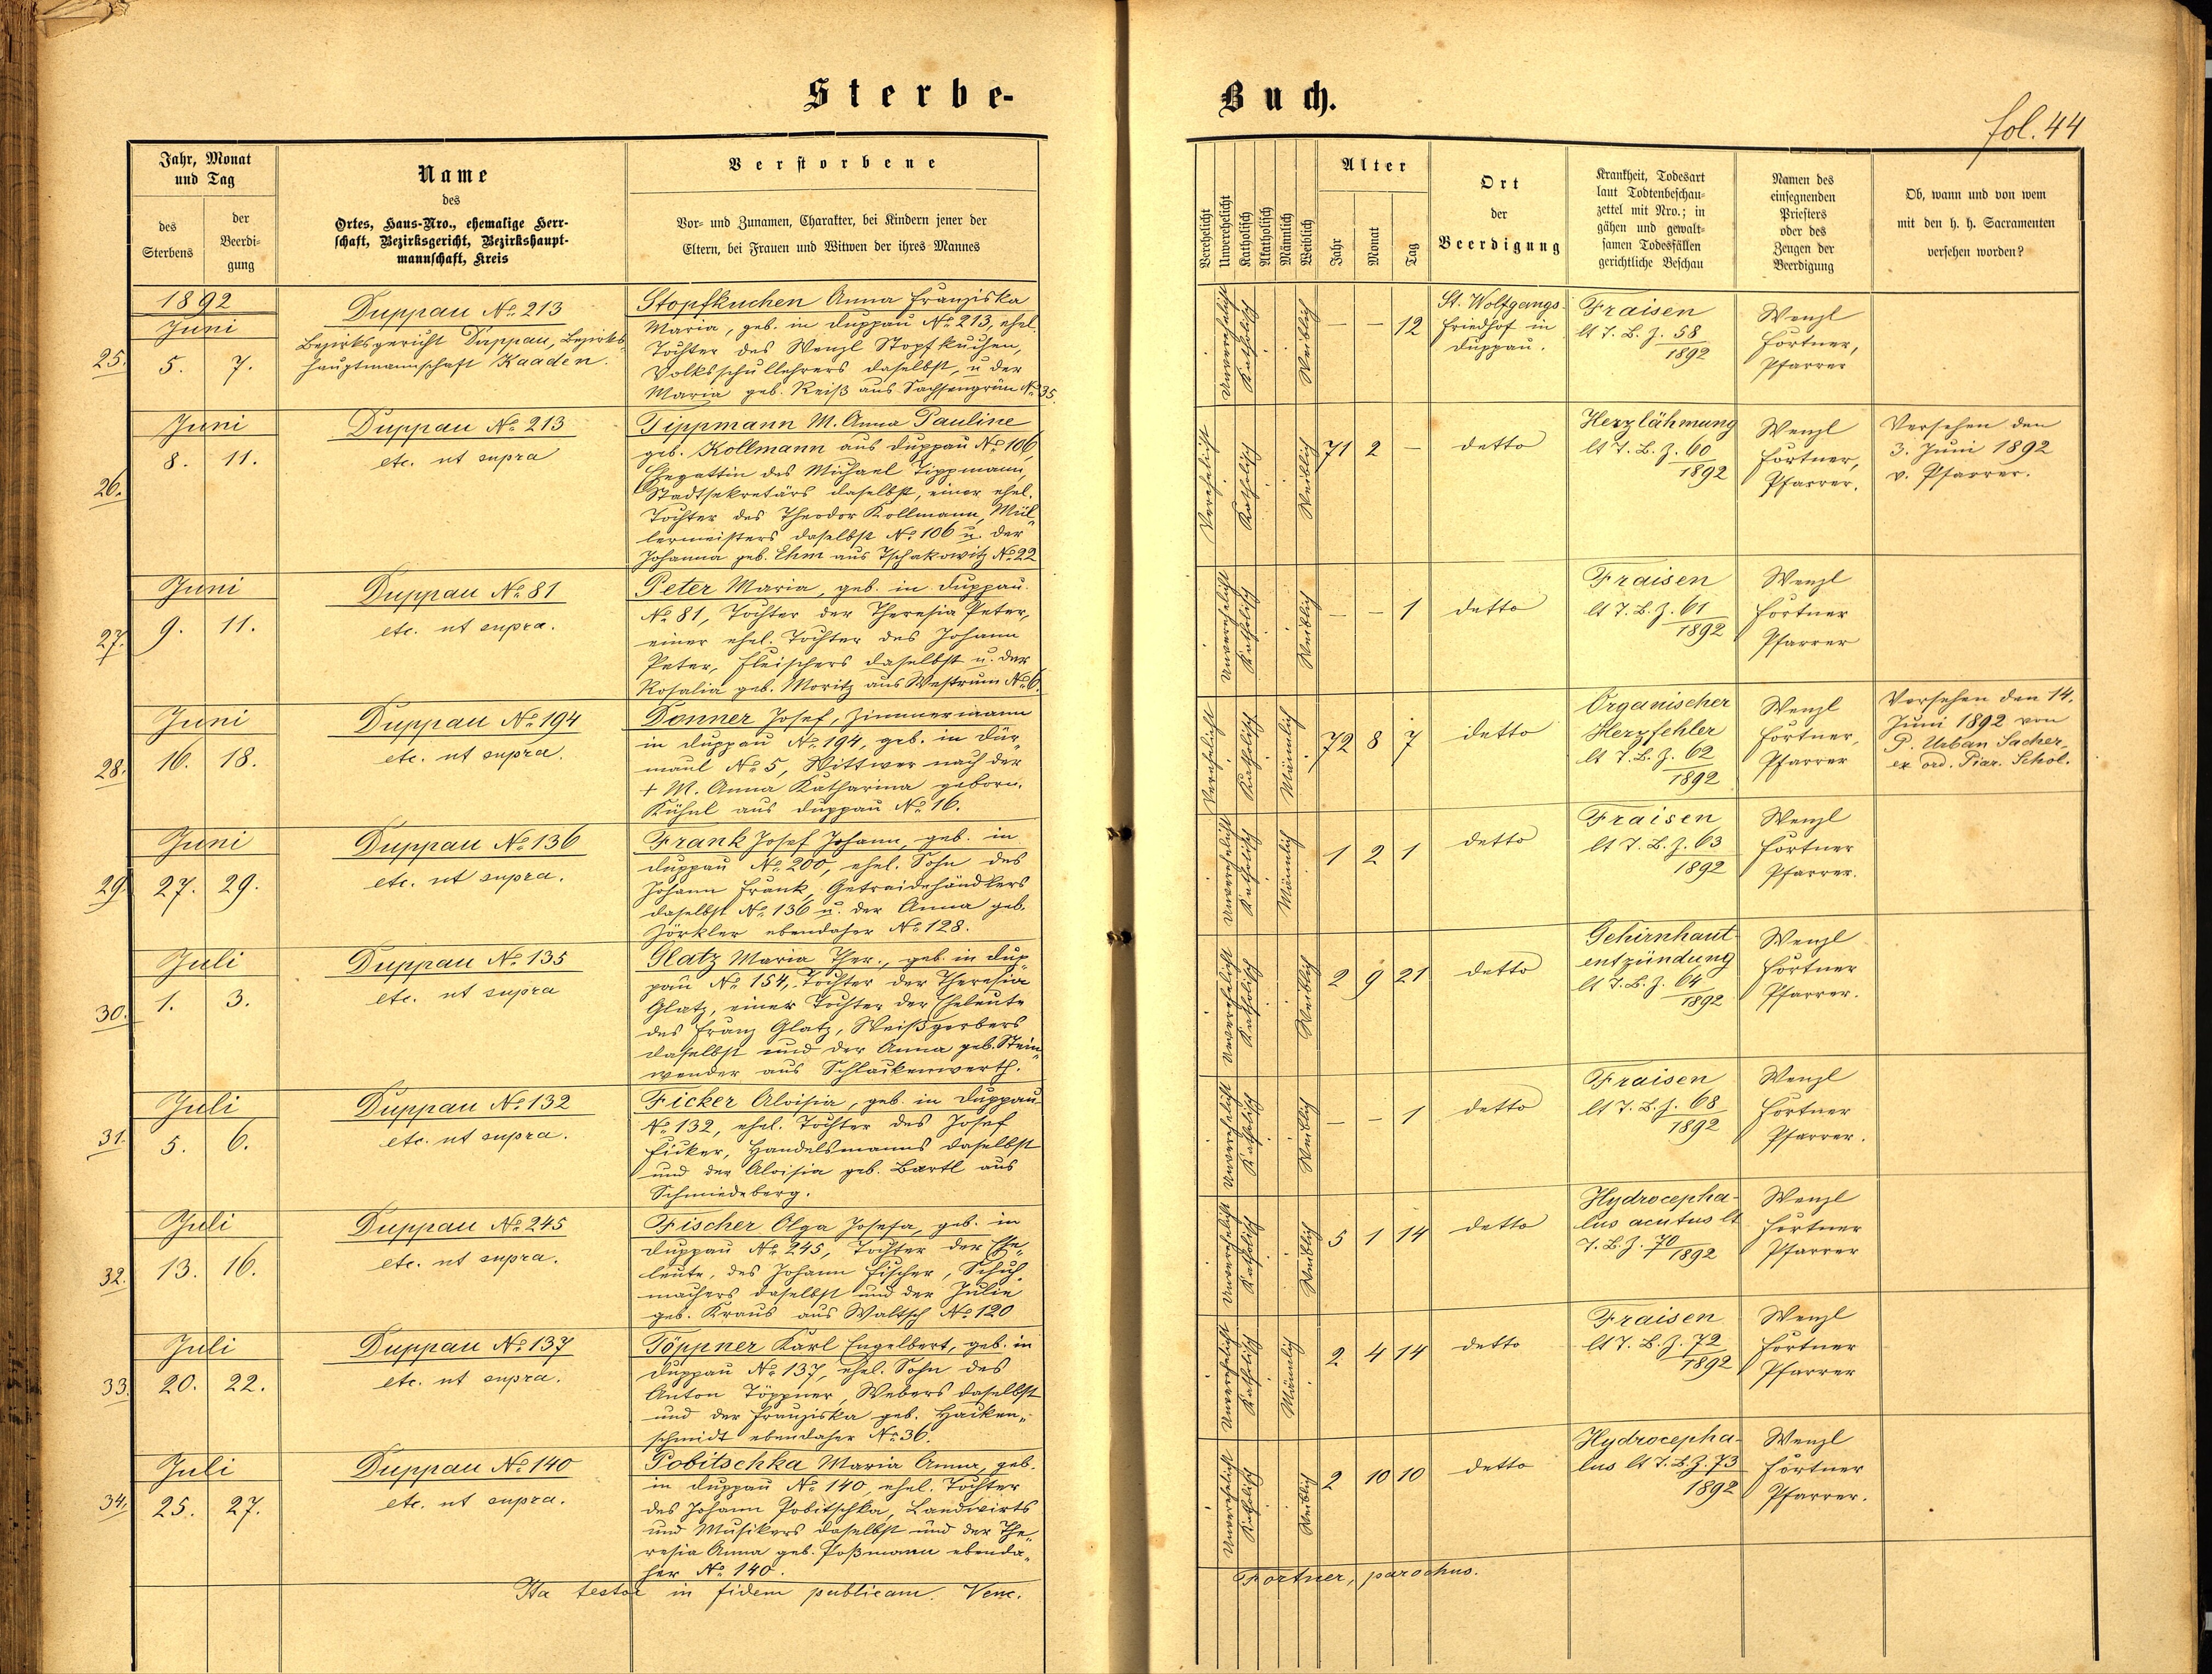 Sterbe-
Buch.
fol. 44
Jahr, Monat
und Tag
des
Sterbens
der
Beerdi-
gung
Name
des
Ortes, Haus-Nro., ehemalige Herr-
schaft, Bezirksgericht, Bezirkshaupt-
mannschaft, Kreis
Verstorbene
Vor- und Zunamen, Charakter, bei Kindern jener der
Eltern, bei Frauen und Witwen der ihres Mannes
Verehelicht
Unverehelicht
Katholisch
Akatholisch
Männlich
Weiblich
Alter
Jahr
Monat
Tag
Ort
der
Beerdigung
Krankheit, Todesart
laut Todtenbeschau-
zettel mit Nro.; in
gähen und gewalt-
samen Todesfällen
gerichtliche Beschau
Namen des
einsegnenden
Priesters
oder des
Zeugen der
Beerdigung
Ob, wann und von wem
mit den h. h. Sacramenten
versehen worden?
1892
Juni
25. 5. 7.
Duppau No. 213
Bezirksgericht Duppau, Bezirks-
hauptmannschaft Kaaden.
Stopfkuchen Anna Franziska
Maria, geb. in Duppau No. 213, ehel.
Tochter des Wenzl Stopfkuchen,
Volksschullehrers daselbst, u der
Maria geb. Reiß aus Sachsengrün No. 35.
Unverehelicht Katholisch Weiblich
— — 12
St. Wolfgangs-
friedhof in
Duppau.
Fraisen
lt T. B. Z. 58
1892
Wenzl
Förtner,
Pfarrer
Juni
26. 8. 11.
Duppau No. 213
etc. ut supra
Tippmann M. Anna Pauline
geb. Kollmann aus Duppau No. 106,
Ehegattin des Michael Tippmann,
Stadtsekretärs daselbst, einer ehel.
Tochter des Theodor Kollmann, Mül-
lermeisters daselbst No. 106 u. der
Johanna geb. Ehm aus Tschakowitz No. 22
Verehelicht Katholisch Weiblich
71 2 —
detto
Herzlähmung
lt T. B. Z. 60
1892
Wenzl
Förtner,
Pfarrer.
Versehen den
3. Juni 1892
v. Pfarrer.
Juni
27. 9. 11.
Duppau No. 81
etc. ut supra.
Peter Maria, geb. in Duppau
No. 81, Tochter der Theresia Peter,
einer ehel. Tochter des Johann
Peter, Fleischers daselbst u. der
Rosalia geb. Moritz aus Westrum No. 6.
Unverehelicht Katholisch Weiblich
— — 1
detto
Fraisen
lt T. B. Z. 61
1892
Wenzl
Förtner
Pfarrer
Juni
28. 16. 18.
Duppau No. 194
etc. ut supra.
Donner Josef, Zimmermann
in Duppau No. 194, geb. in Dür-
maul No. 5, Wittwer nach der
+ M. Anna Katharina geborn.
Kühnl aus Duppau No. 16.
Verehelicht Katholisch Männlich
72 8 7
detto
Organischer
Herzfehler
lt T. B. Z. 62
1892
Wenzl
Förtner,
Pfarrer
Versehen den 14.
Juni 1892 von
P. Urban Sacher,
ex ord. Piar. Schol.
Juni
29. 27. 29.
Duppau No. 136
etc. ut supra.
Frank Josef Johann, geb. in
Duppau No. 200, ehel. Sohn des
Johann Frank, Getraidehändlers
daselbst No. 136 u. der Anna geb.
Zörkler ebendaher No. 128.
Unverehelicht Katholisch Männlich
1 2 1
detto
Fraisen
lt T. B. Z. 63
1892
Wenzl
Förtner
Pfarrer.
Juli
30. 1. 3.
Duppau No. 135
etc. ut supra
Glatz Maria Ther., geb. in Dup-
pau No. 154, Tochter der Theresia
Glatz, einer Tochter der Eheleute
des Franz Glatz, Weißgerbers
daselbst und der Anna geb. Stein-
wender aus Schlackenwerth.
Unverehelicht Katholisch Weiblich
2 9 21
detto
Gehirnhaut-
entzündung
lt T. B. Z. 64
1892
Wenzl
Förtner
Pfarrer.
Juli
31. 5. 6.
Duppau No. 132
etc. ut supra.
Ficker Aloisia, geb. in Duppau
No. 132, ehel. Tochter des Josef
Ficker, Handelsmanns daselbst
und der Aloisia geb. Bartl aus
Schmiedeberg.
Unverehelicht Katholisch Weiblich
— — 1
detto
Fraisen
lt T. B. Z. 68
1892
Wenzl
Förtner
Pfarrer.
Juli
32. 13. 16.
Duppau No. 245
etc. ut supra.
Fischer Olga Josefa, geb. in
Duppau No. 245, Tochter der Ehe-
leute, des Johann Fischer, Schuh-
machers daselbst und der Julie
geb. Kraus aus Waltsch No. 120
Unverehelicht Katholisch Weiblich
5 1 14
detto
Hydrocepha-
lus acutus lt
T. B. Z. 70
1892
Wenzl
Förtner
Pfarrer
Juli
33. 20. 22.
Duppau No. 137
etc. ut supra.
Töppner Karl Engelbert, geb. in
Duppau No. 137, ehel. Sohn des
Anton Töppner, Webers daselbst
und der Franziska geb. Hacken-
schmidt ebendaher No. 36.
Unverehelicht Katholisch Männlich
2 4 14
detto
Fraisen
lt T. B. Z. 72
1892
Wenzl
Förtner
Pfarrer
Juli
34. 25. 27.
Duppau No. 140
etc. ut supra.
Pobitschka Maria Anna, geb.
in Duppau No. 140, ehel. Tochter
des Johann Pobitschka, Landwirts
und Musikers daselbst und der The-
resia Anna geb. Poßmann ebenda-
her No. 140.
Unverehelicht Katholisch Weiblich
2 10 10
detto
Hydrocepha-
lus lt T. B. Z. 73
1892
Wenzl
Förtner
Pfarrer.
Ita testor in fidem publicam. Venc.
Förtner, parochus.